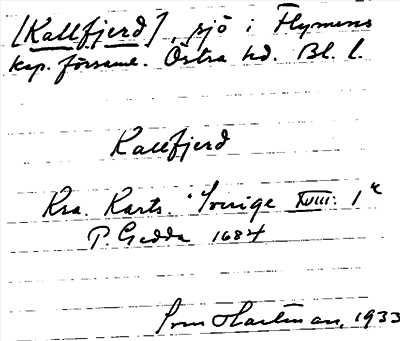 [Kallfjerd], sjö i Flymens
kap. församl. Östra hd. Bl. l.
Kallfjerd
Kra. Karts. "Sverige XVIII: 1"
P. Gedda 1684
Sven Hartman, 1933